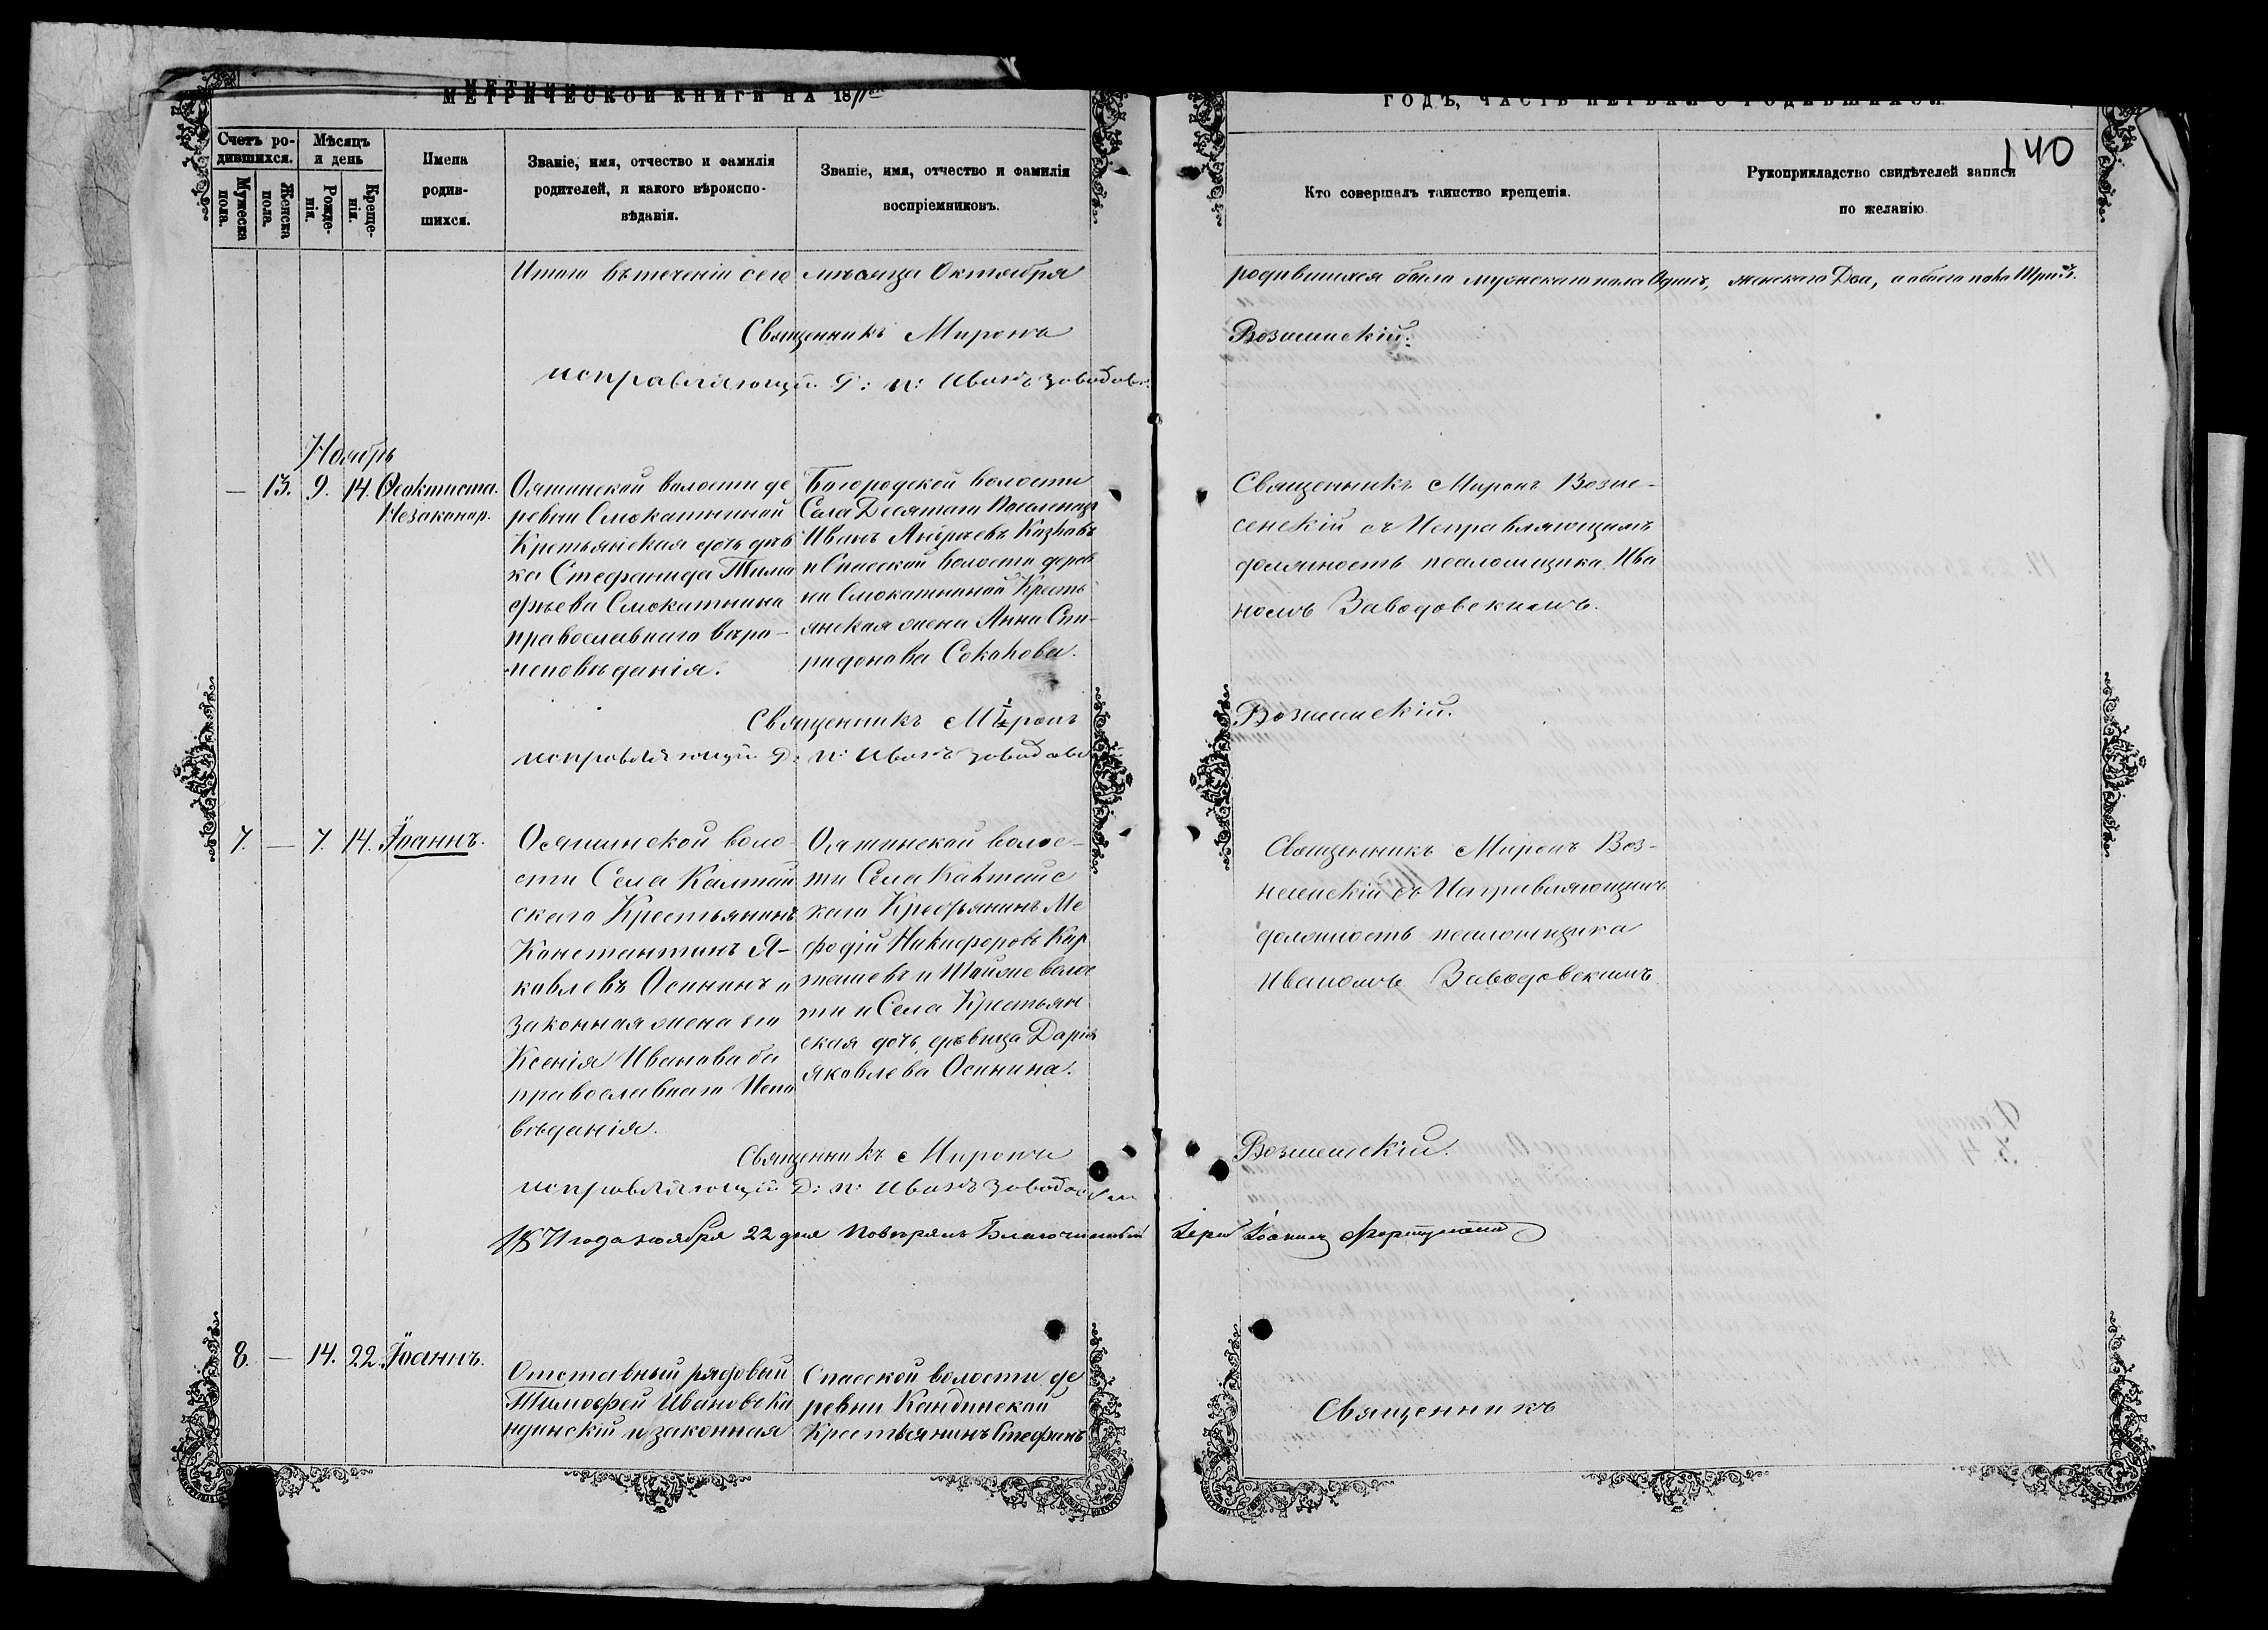 МЕТРИЧЕСКОЙ КНИГИ НА 1871 ГОДЪ, ЧАСТЬ ПЕРВАЯ О РОДИВШИХСЯ
140
Счетъ родившихся.
Мужеска пола.
Женска пола.
Мѣсяцъ и день
Рожденія.
Крещенія.
Имена
родив-
шихся.
Званіе, имя, отчество и фамилія
родителей, и какого вѣроиспо-
вѣданія.
Званіе, имя, отчество и фамилія
воспріемниковъ.
Кто совершалъ таинство крещенія.
Рукоприкладство свидѣтелей записи
по желанію
Итого втеченіи сего мѣсяца Октября родившихся было мужескаго пола Одинъ, женскаго Два, а обоего пола Три
Священникъ Миронъ Вознесенскій.
исправляющій д: п: Иванъ Заводовс
Ноябрь
— 13. 9. 14. Ѳеоктиста.
Незаконор.
Ояшинской волости де
ревни Смокатниной
Крестьянская дочь дѣв
ка Стефанида Тимо
фѣева Смокатнина
православнаго вѣро-
исповѣданія.
Богородской волости
Села Десятаго Поселенецъ
Иванъ Андреевъ Козловъ
и Спасской волости дерев
ни Смокатниной Кресть
янская жена Анна Спи-
ридонова Соколова.
Священникъ Миронъ Возне-
сенскій съ Исправляющимъ
должность псаломщика Ива
номъ Заводовскимъ.
Священникъ Миронъ Вознесенскій.
исправляющій д: п: Иванъ Заводовс
7. — 7. 14. Іоаннъ.
Ояшинской воло
сти Села Калтай
скаго Крестьянинъ
Константинъ Я-
ковлевъ Осининъ и
законная жена его
Ксенія Иванова ба
православнаго Испо
вѣданія.
Ояшинской волос-
ти Села Калтайс
каго Крестьянинъ Ме
фодій Никифоровъ Кар
ташевъ и Тойже волос
ти и Села Крестьян
ская дочь, дѣвица Дарія
Яковлева Осинина.
Священникъ Миронъ Воз-
несенскій съ Исправляющимъ
должность псаломщика
Иваномъ Заводовскимъ.
Священникъ Миронъ Вознесенскій.
исправляющій д: п: Иванъ Заводовскій
1871 года ноября 22 дня Повѣрялъ Благочинный Іерей Іоаннъ
8. — 14. 22. Іоаннъ.
Отставный рядовый
Тимофей Ивановъ Ка
ндинскій и законная
Спасской волости де
ревни Кандинской
Крестьянинъ Стефанъ
Священникъ